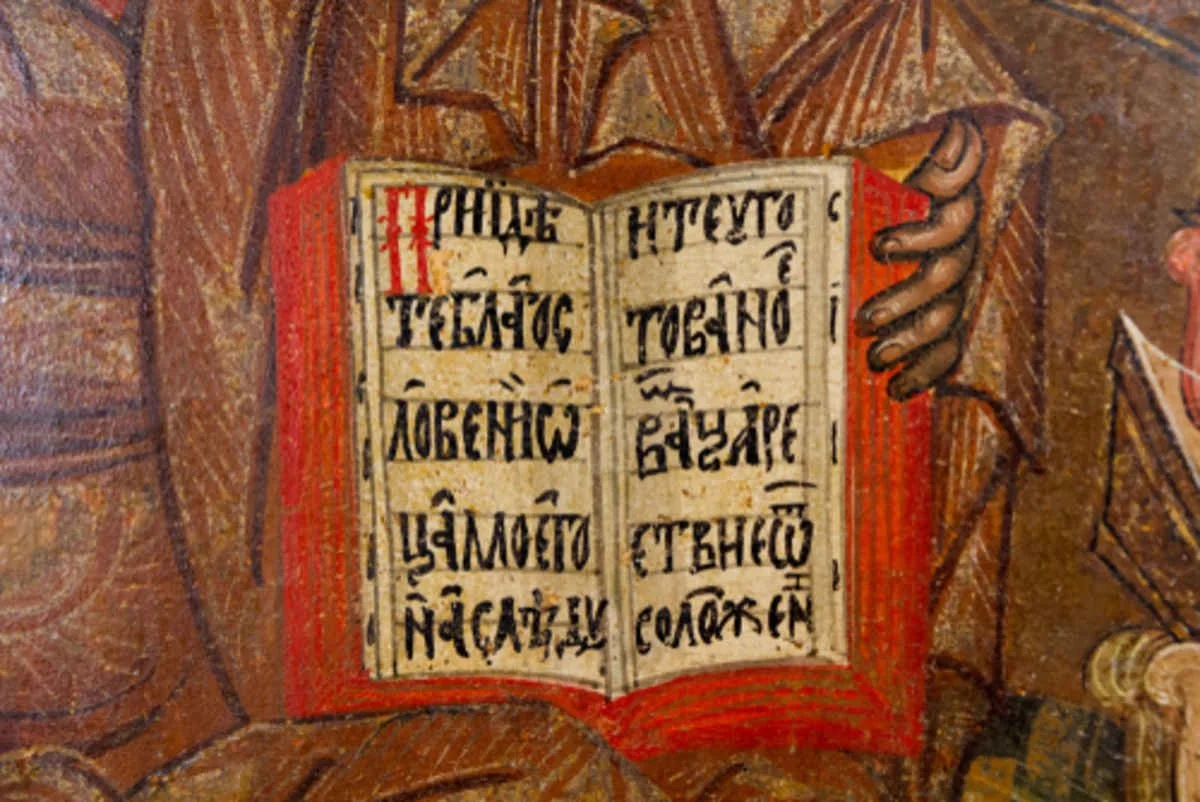 Прїидѣ
те бл҃гос
ловенїи ѡ
ц҃а моего
наслѣду
ите уго
тованое
ва цр҃
ст вне ѿ
соложен